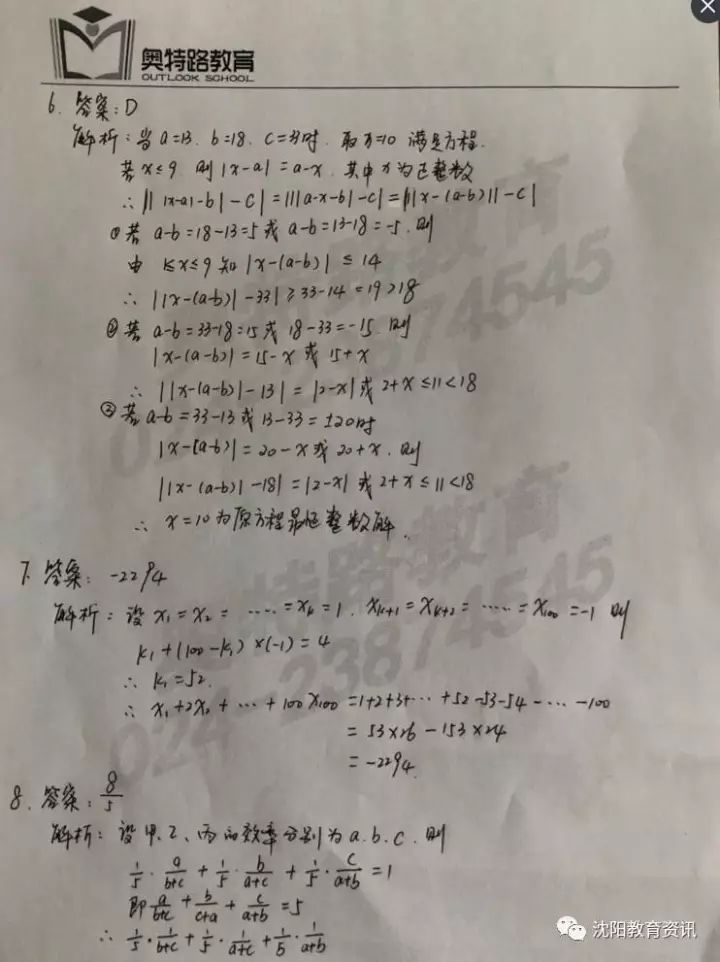 奥特路教育
OUTLOOK SCHOOL
6. 答案: D
解析: 当 a=13. b=18. c=33时. 取x=10 满足方程.
若 x≤9. 则 |x-a| = a-x. 其中 x 为正整数
∴ || |x-a|-b| -c| = |||a-x-b|-c| = |||x-(a-b)||-c|
① 若 a-b=18-13=5 或 a-b=13-18=-5. 则
由 1≤x≤9 知 |x-(a-b)| ≤ 14
∴ ||x-(a-b)|-33| ≥ 33-14 = 19 > 18
② 若 a-b=33-18=15 或 18-33=-15. 则
|x-(a-b)| = 15-x 或 15+x
∴ ||x-(a-b)|-13| = |2-x| 或 2+x ≤ 11 < 18
③ 若 a-b = 33-13 或 13-33 = ±20时
|x-(a-b)| = 20-x 或 20+x. 则
||x-(a-b)|-18| = |2-x| 或 2+x ≤ 11 < 18
∴ x=10 为原方程最小整数解.
7. 答案: -2294
解析: 设 x₁=x₂= ⋯⋯ =xₖ=1. xₖ₊₁=xₖ₊₂= ⋯⋯ =x₁₀₀ =-1 则
k₁+(100-k₁)×(-1)=4
∴ k₁=52.
∴ x₁+2x₂+ ⋯ +100x₁₀₀ =1+2+3+⋯ +52-53-54- ⋯ -100
= 53×26 - 153×24
= -2294.
8. 答案: 8/5
解析: 设甲、乙、丙的效率分别为 a.b.c. 则
1/5 · a/(b+c) + 1/5 · b/(a+c) + 1/5 · c/(a+b) = 1
即 a/(b+c) + b/(c+a) + c/(a+b) = 5
∴ 1/5 · 1/(b+c) + 1/5 · 1/(a+c) + 1/5 · 1/(a+b)
特路教育
024-23874545
沈阳教育资讯